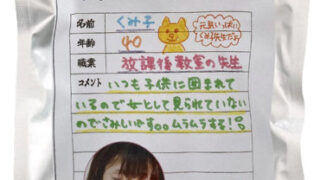 名前 くみ子
年齢 40
職業 放課後教室の先生
コメント いつも子供に囲まれて
いるので女として見られていない
のでさみしいです。。ムラムラする!